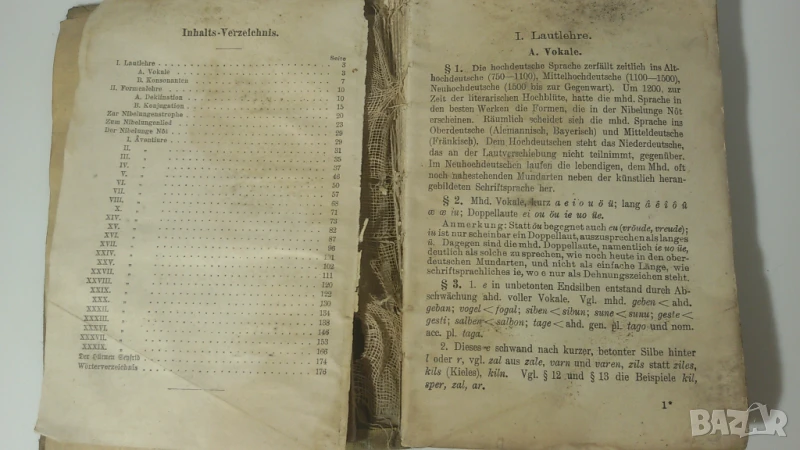 Inhalts-Verzeichnis.
Seite
I. Lautlehre 3
A. Vokale 3
B. Konsonanten 7
II. Formenlehre 10
A. Deklination 10
B. Konjugation 15
Zur Nibelungenstrophe 23
Zum Nibelungenlied 29
Der Nibelunge Nôt 29
I. Âventiure 29
II. „ 31
III. „ 35
IV. „ 37
V. „ 46
VI. „ 50
VII. „ 57
VIII. „ 68
X. „ 71
XIV. „ 73
XV. „ 83
XVI. „ 87
XVII. „ 96
XXIV. „
XXV. „
XXVII. „ 111
XXVIII. „ 120
XXIX. „ 122
XXX. „ 130
XXXI. „ 134
XXXIII. „ 138
XXXVI. „ 146
XXXVII. „ 153
XXXIX. „ 166
Der Hürnen Seyfrid 174
Wörterverzeichnis 176
I. Lautlehre.
A. Vokale.
§ 1. Die hochdeutsche Sprache zerfällt zeitlich ins Alt-
hochdeutsche (750—1100), Mittelhochdeutsche (1100—1500),
Neuhochdeutsche (1500 bis zur Gegenwart). Um 1200, zur
Zeit der literarischen Hochblüte, hatte die mhd. Sprache in
den besten Werken die Formen, die in der Nibelunge Nôt
erscheinen. Räumlich scheidet sich die mhd. Sprache ins
Oberdeutsche (Alemannisch, Bayerisch) und Mitteldeutsche
(Fränkisch). Dem Hochdeutschen steht das Niederdeutsche,
das an der Lautverschiebung nicht teilnimmt, gegenüber.
Im Neuhochdeutschen laufen die lebendigen, dem Mhd. oft
noch nahestehenden Mundarten neben der künstlich heran-
gebildeten Schriftsprache her.
§ 2. Mhd. Vokale, kurz a e i o u ö ü; lang â ê î ô û
æ œ iu; Doppellaute ei ou öu ie uo üe.
Anmerkung: Statt öu begegnet auch eu (vröude, vreude);
iu ist nur scheinbar ein Doppellaut, auszusprechen als langes
ü. Dagegen sind die mhd. Doppellaute, namentlich ie uo üe,
deutlich als solche zu sprechen, wie noch heute in den ober-
deutschen Mundarten, und nicht als einfache Länge, wie
schriftsprachliches ie, wo e nur als Dehnungszeichen steht.
§ 3. 1. e in unbetonten Endsilben entstand durch Ab-
schwächung ahd. voller Vokale. Vgl. mhd. geben < ahd.
geban; vogel < fogal; siben < sibun; sune < sunu; geste <
gesti; salben < salbon; tage < ahd. gen. pl. tago und nom.
acc. pl. taga.
2. Dieses e schwand nach kurzer, betonter Silbe hinter
l oder r, vgl. zal aus zale, varn und varen, zils statt ziles,
kils (Kieles), kiln. Vgl. § 12 und § 13 die Beispiele kil,
sper, zal, ar.
1*
BAZAR